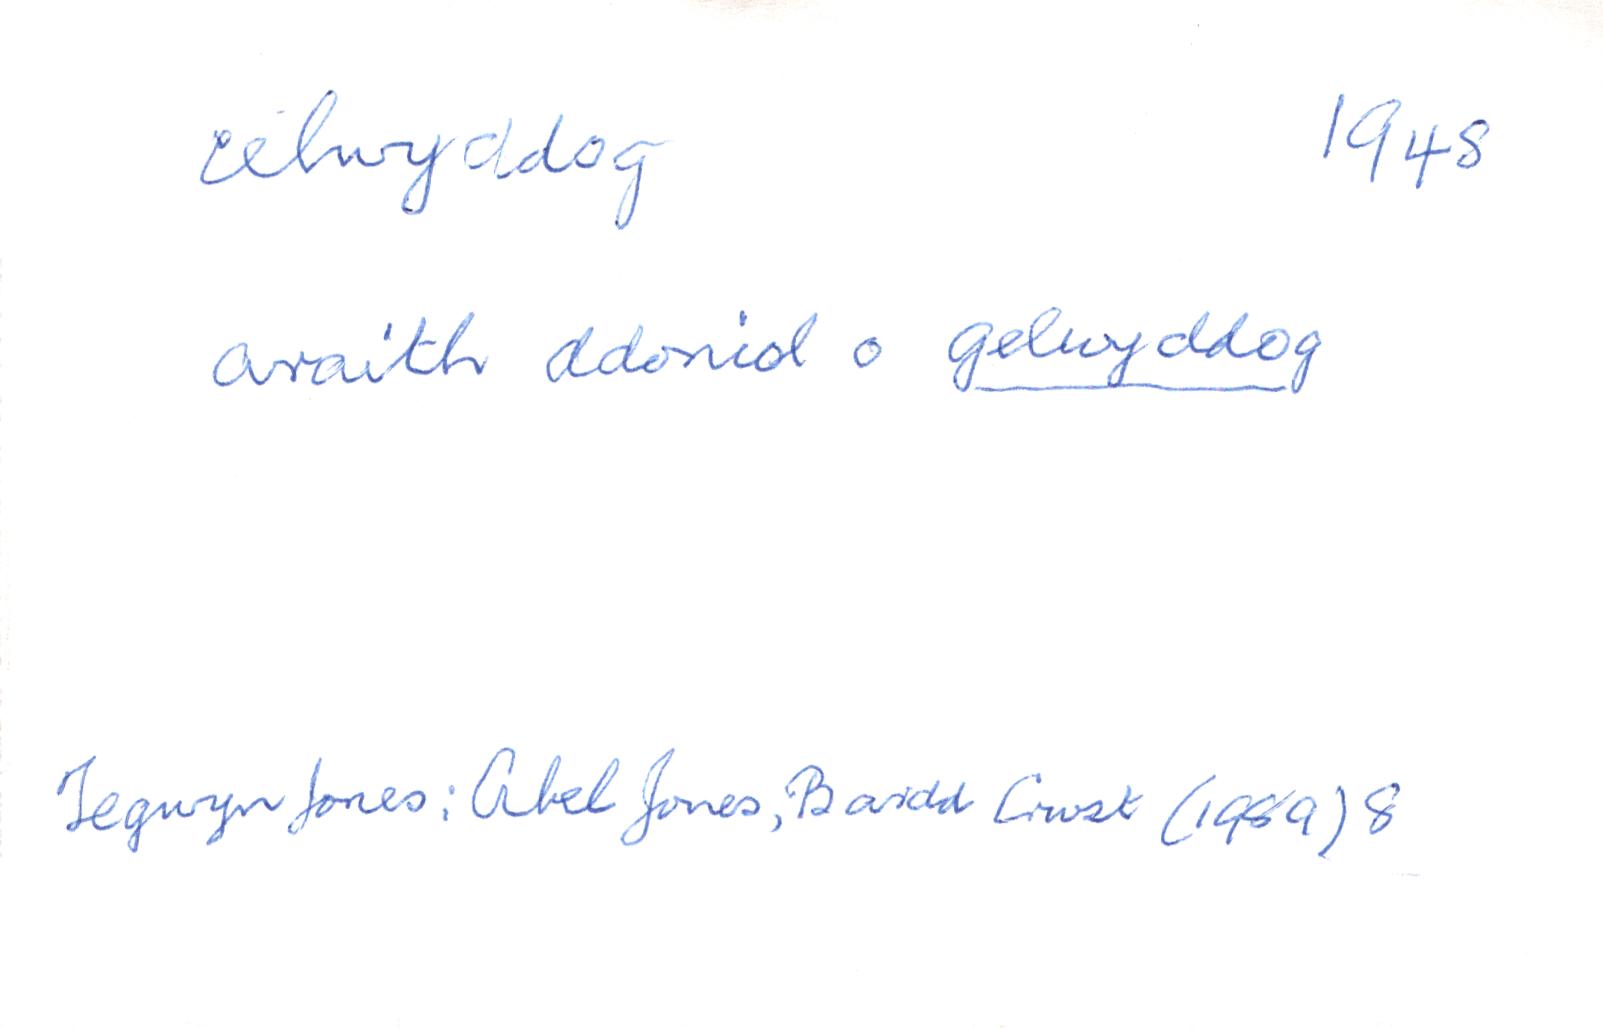 celwyddog 1948
araith ddoniol o gelwyddog
Tegwyn Jones: Abel Jones, Bardd Crwst (1989) 8